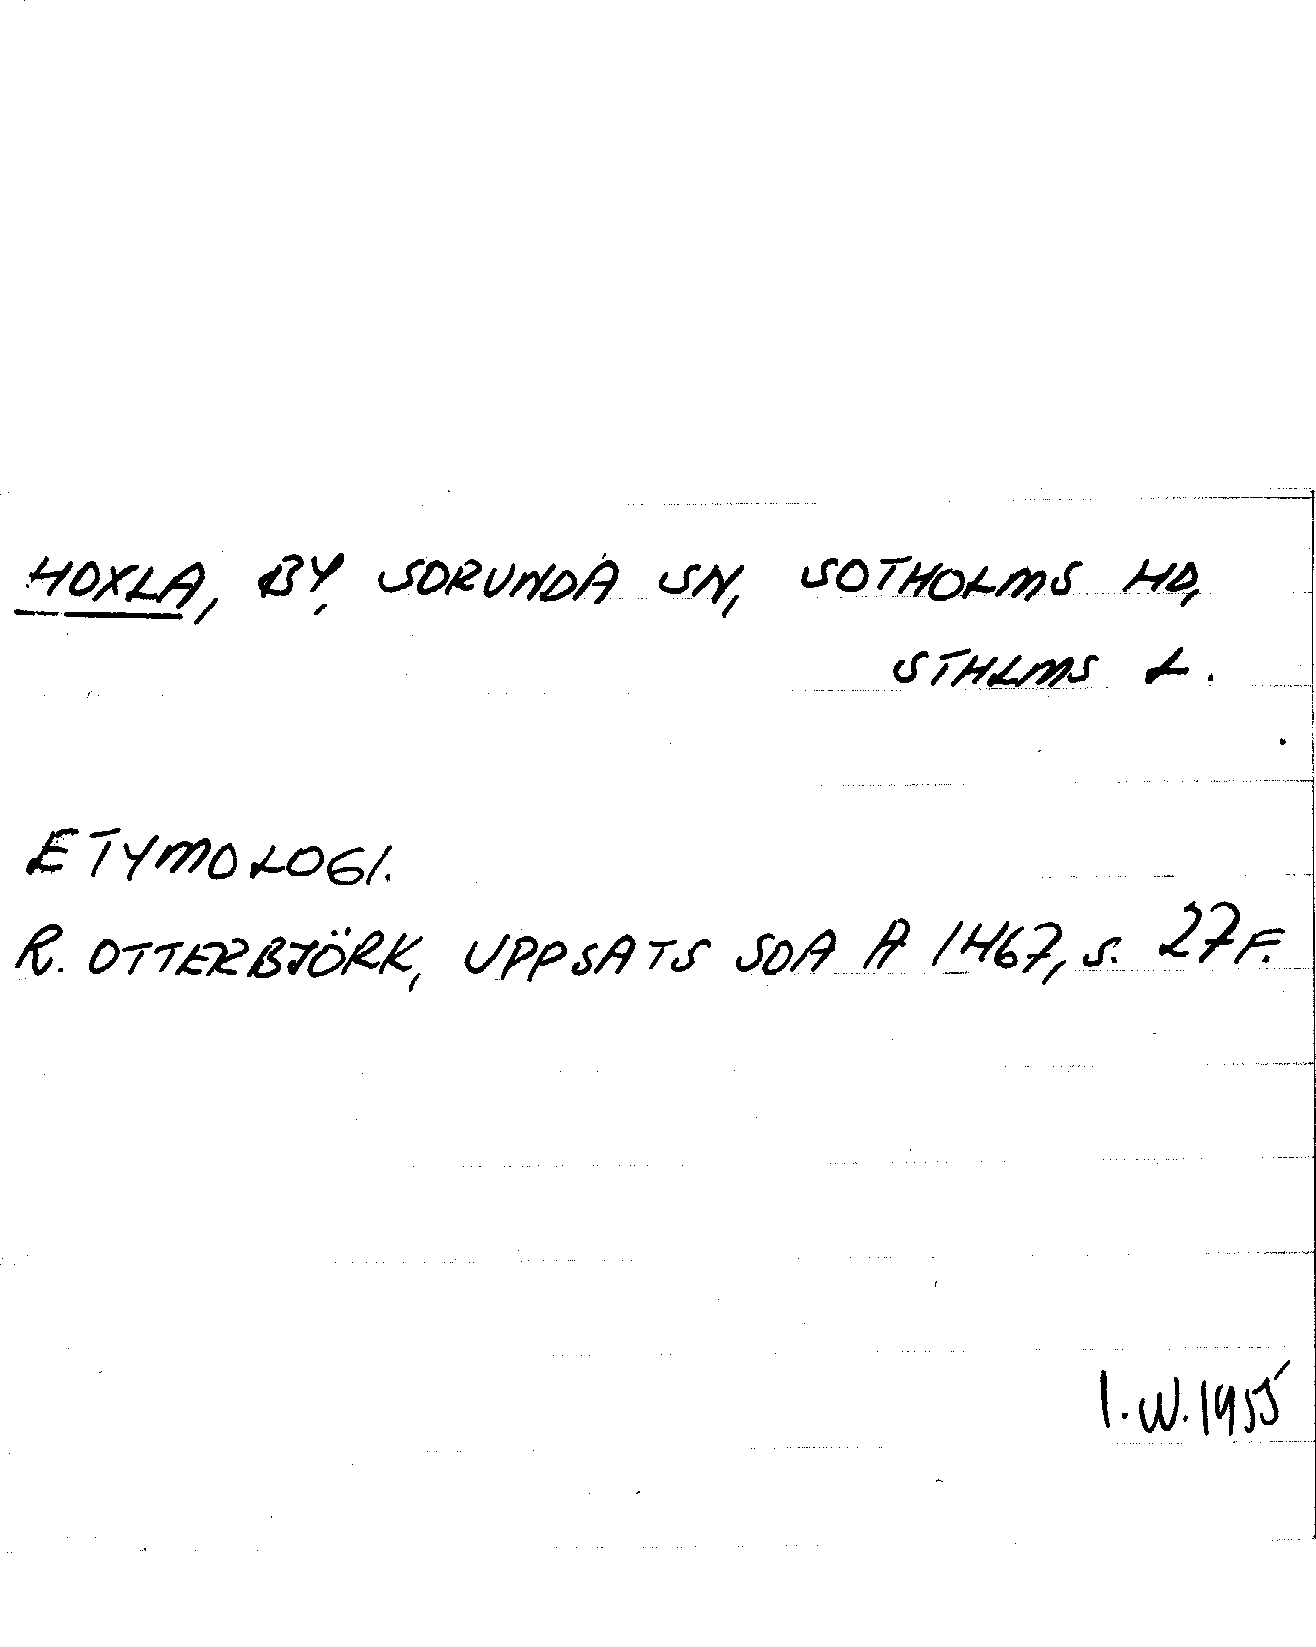 HOXLA, BY, SORUNDA SN, SOTHOLMS HD,
STHLMS L.
ETYMOLOGI.
R. OTTERBJÖRK, UPPSATS SOA A 1467, S. 27 F.
I.W. 1955